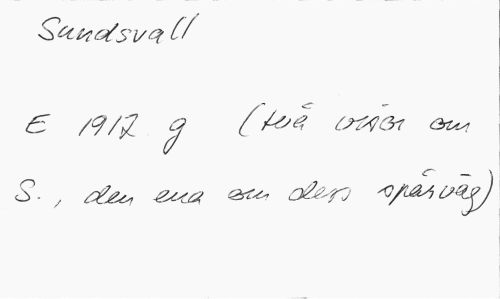 Sundsvall
E 1917 g (två visor om
S., den ena om dess spårväg)